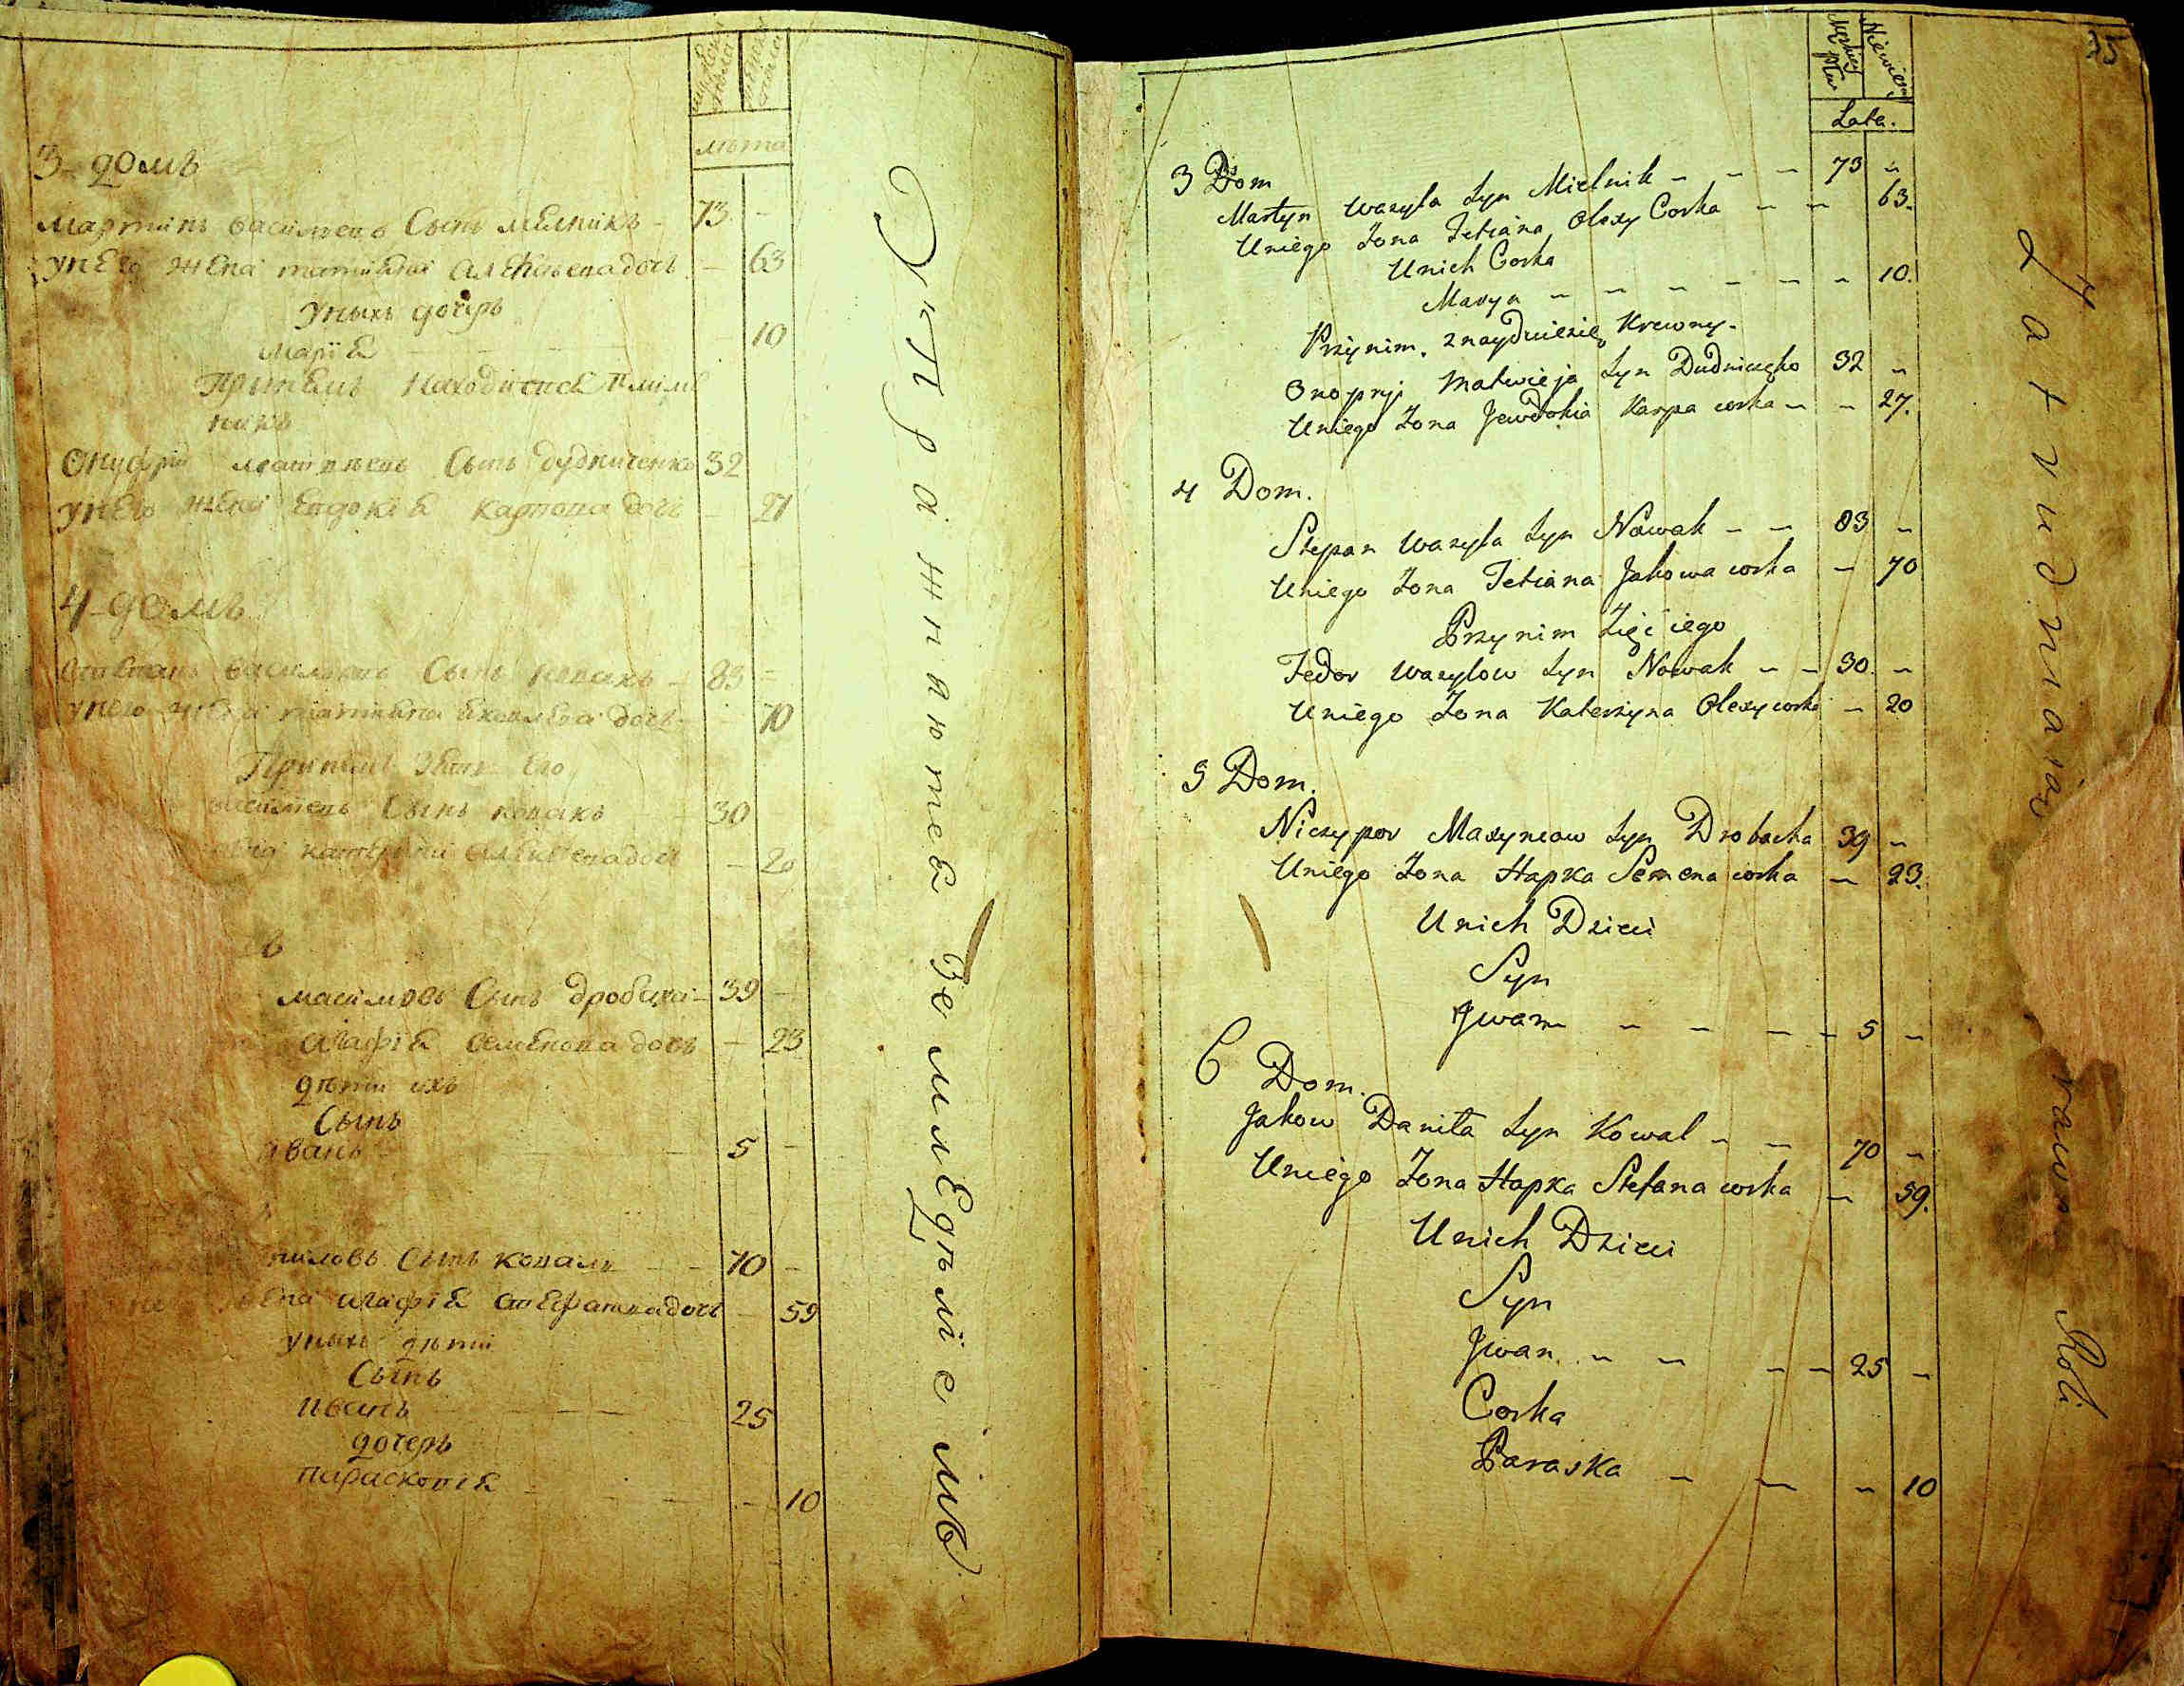 лѣта
3 домъ
мартинъ васильевъ Сынъ мелникъ - 73 -
унего жена татиана алексѣева дочь - 63
уныхъ дочерь
марія - - - - 10
Принемъ находится племе
никъ
Онуфрій матвѣевъ Сынъ дудниченко 32
унего жена евдокія карпова дочь - 27
4 домъ
степанъ васильевъ Сынъ новакъ - 83 -
унего жена татиана яковлева дочь - 70
Принемъ зять его
васильевъ Сынъ новакъ - 30
катерина алексѣева дочь - 20
ъ
масимовъ Сынъ дробаха - 39 -
агафія семенова дочь - 23
дѣти ихъ
Сынъ
иванъ - - - 5 -
ниловъ Сынъ коваль - - 70 -
жена агафія стефанова дочь - 59
уныхъ дѣти
Сынъ
иванъ - - - 25
дочерь
параскопія - - - 10
Упражняются земледѣліемъ
35
Męskiey płci
Niewieś
Lata.
3 Dom
Martyn Wasyla Syn Mielnik - - - 73 -
Uniego Zona Tetiana Olexy Corka - - 63.
Unich Corka
Marya - - - - - - 10.
Przynim. znayduiesię Krewny.
Onopryi Matwieja Syn Dudniczęko 32 -
Uniego Zona Jewdokia Karpa corka - - 27.
4 Dom.
Stepan Wasyla Syn Nowak - - 83 -
Uniego Zona Tetiana Jakowa corka - 70
Przynim Zięć iego
Fedor Wasylow Syn Nowak - - 30 -
Uniego Zona Katerzyna Olexy corka - 20
5 Dom.
Niczypor Maxymow Syn Drobacha 39 -
Uniego Zona Hapka Semena corka - 23.
Unich Dzieci
Syn
Jwan - - - - 5 -
6 Dom.
Jakow Daniła Syn Kowal - - 70 -
Uniego Zona Hapka Stefana corka - 59.
Unich Dzieci
Syn
Jwan - - - - 25 -
Corka
Paraska - - - 10
Zatrudniaią Roli